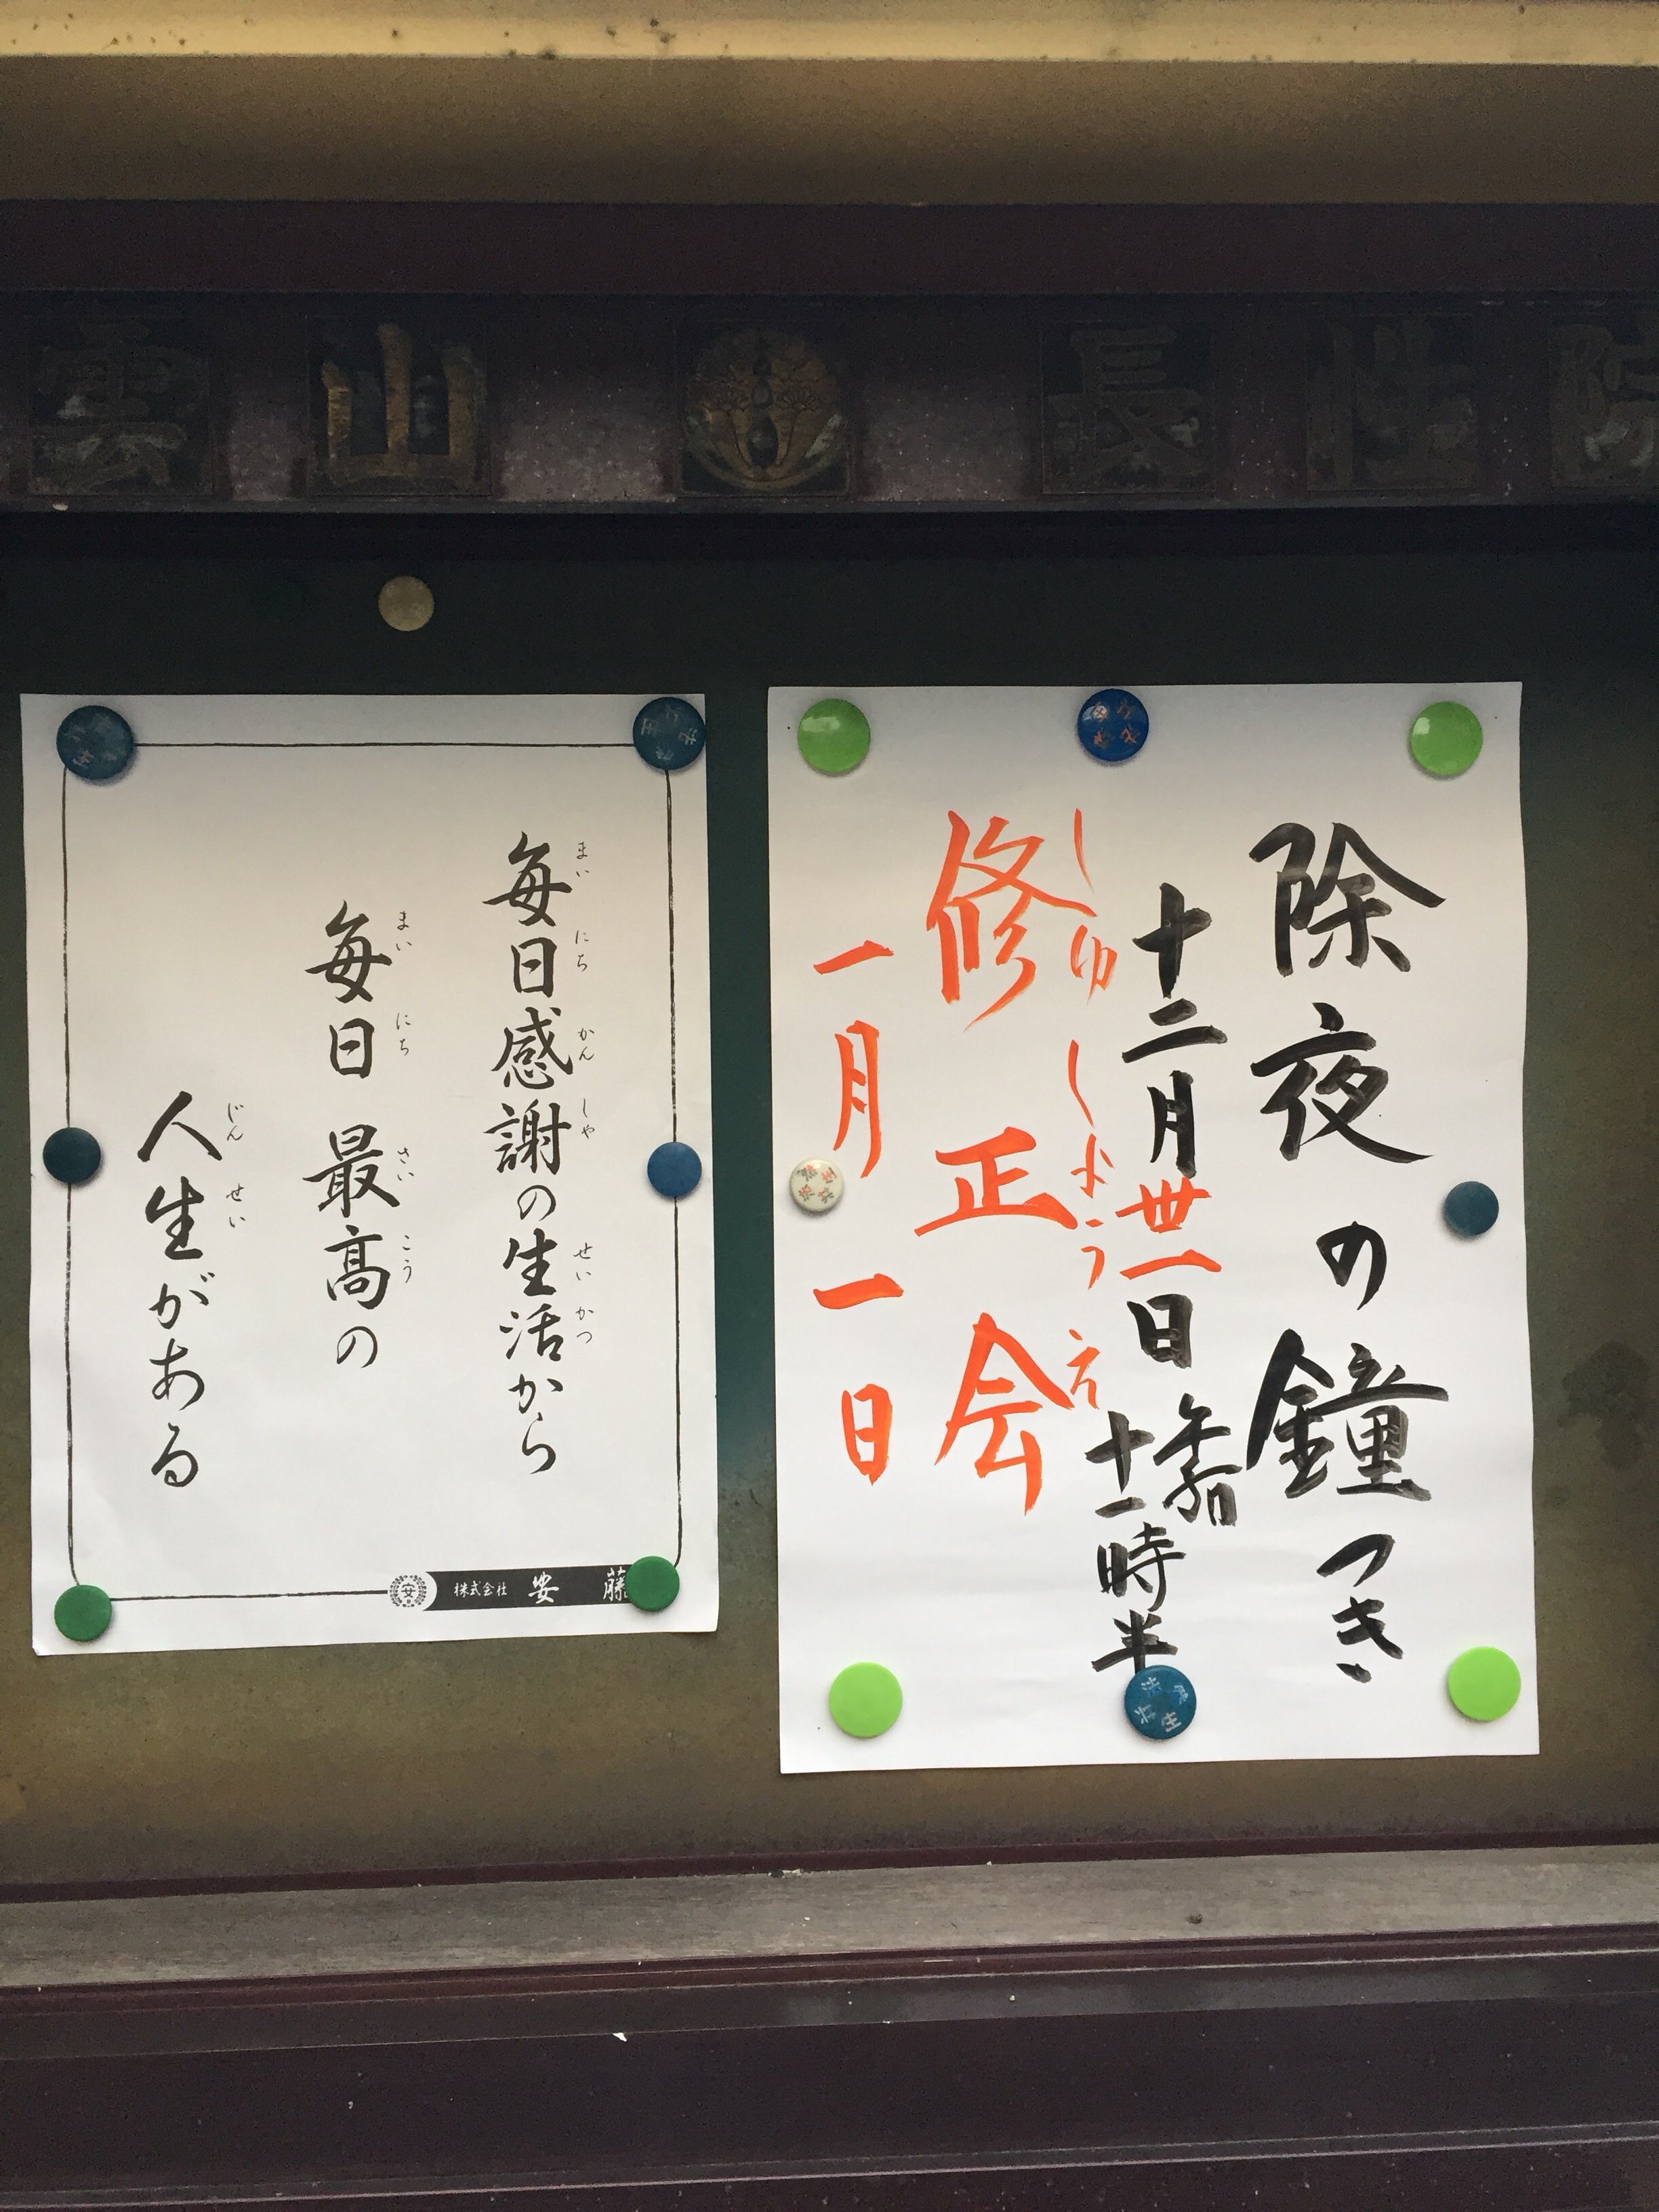 雲山 長性院
除夜の鐘つき
十二月卅一日
午后
十一時半
しゅしょうえ
修正会
一月一日
まいにちかんしゃ せいかつ
毎日感謝の生活から
まいにち さいこう
毎日 最高の
じんせい
人生がある
株式会社 安藤